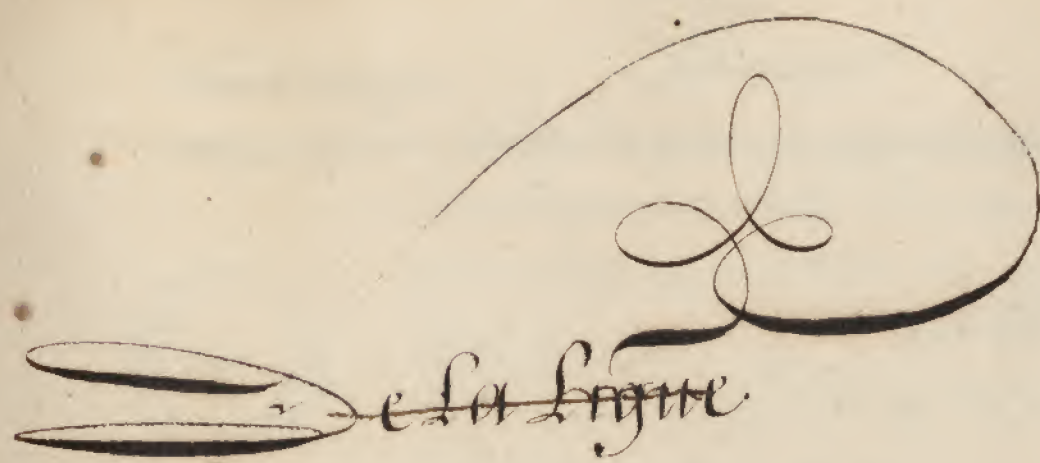 De la Ligue.